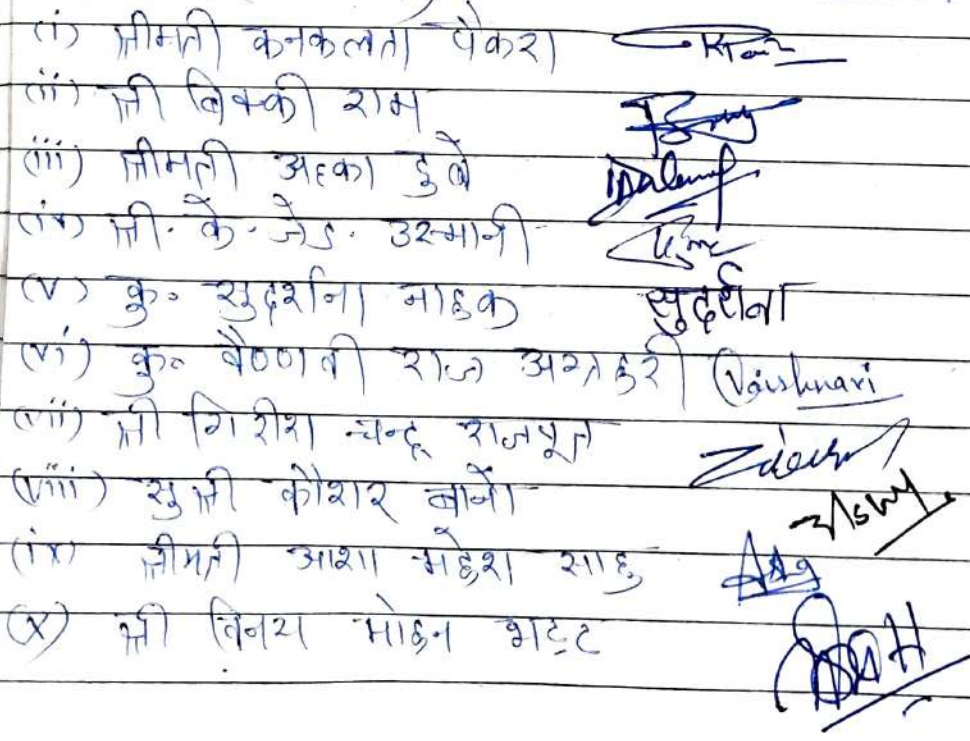 (i) श्रीमती कनकलता पैकरा
(ii) श्री बिक्की राम
(iii) श्रीमती अल्का दुबे
(iv) श्री. के. जेड. उस्मानी
(v) कु० सुदर्शना नाइक सुदर्शना
(vi) कु० वैष्णवी राज अग्रहरी Vaishnavi
(vii) श्री गिरीश चन्द्र राजपूत
(viii) सुश्री कौशर बानो
(ix) श्रीमती आशा महेश साहु
(x) श्री विनय मोहन भट्ट